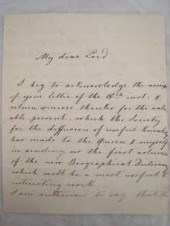 My dear Lord
I beg to acknowledge the
of your letter of the inst: &
return sincere thanks for the
present, which the Society
for the diffusion of useful
has made to the Queen & myself
in sending us the first volume
of the new Biographical
which will be a most useful &
interesting work.
I am to say that